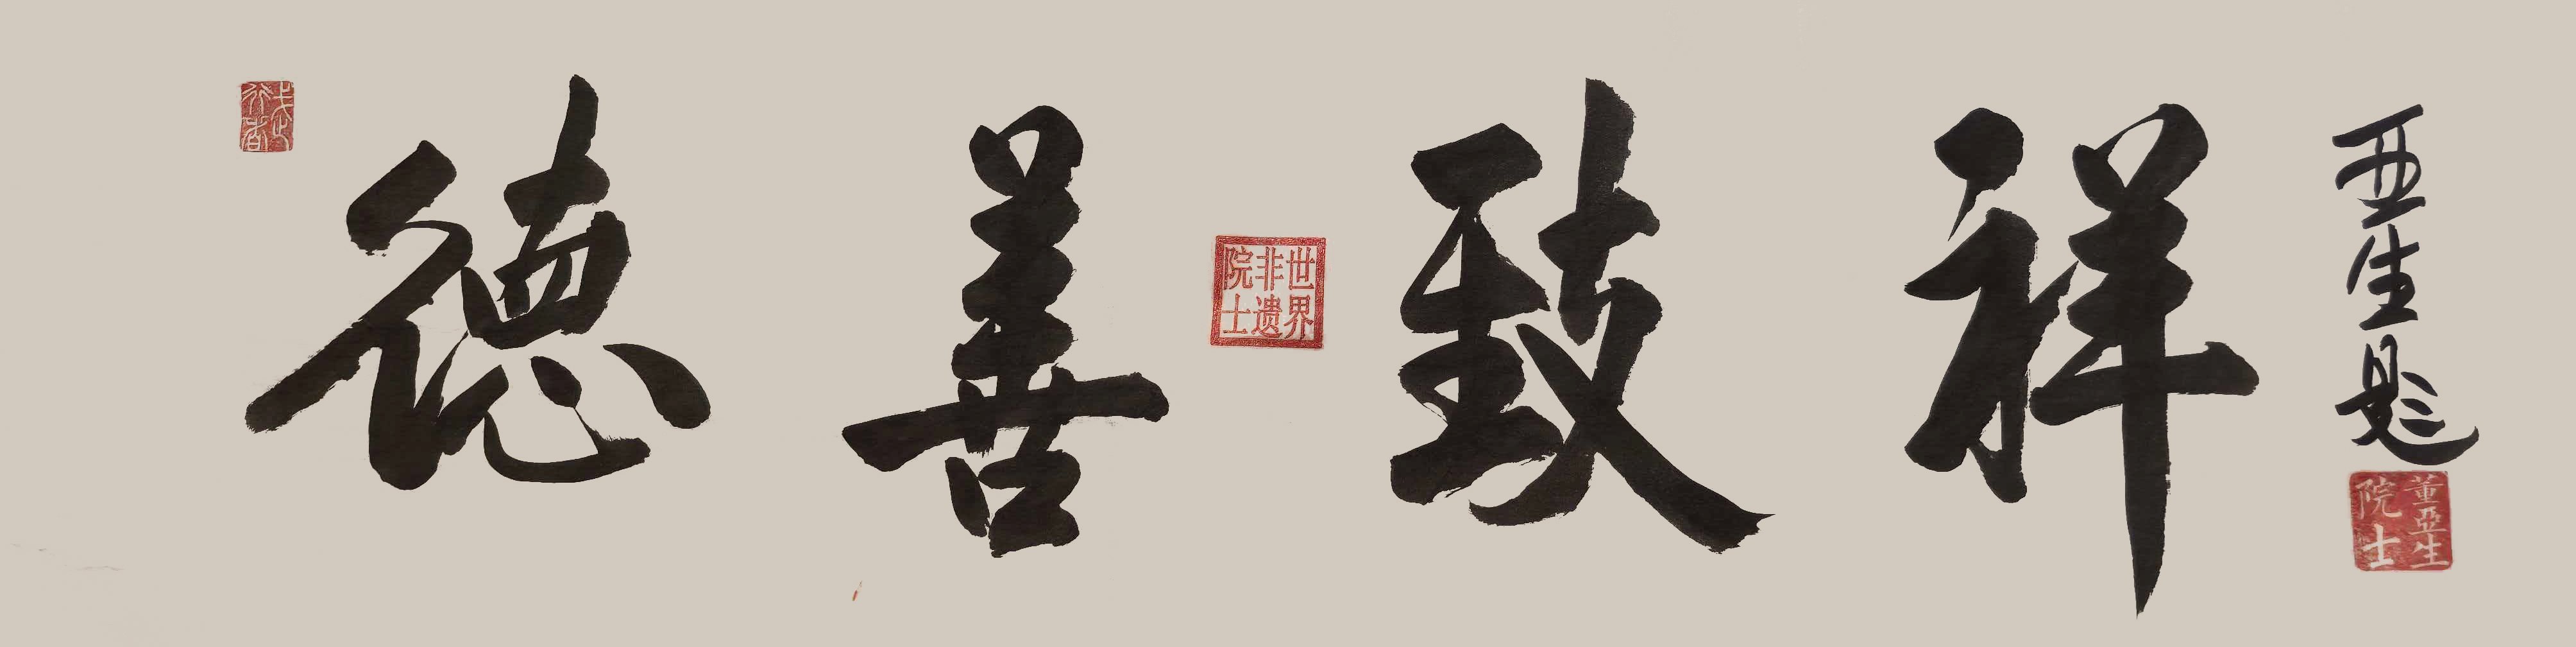 德善致祥
亚生题
世界
非遗
院士
董亚生
院士